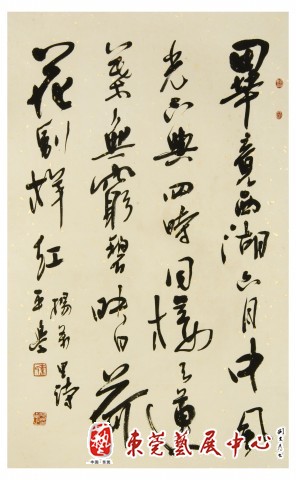 畢竟西湖六月中風
光不與四時同接天蓮
葉無窮碧映日荷
花別樣紅
楊萬里詩
東莞藝展中心